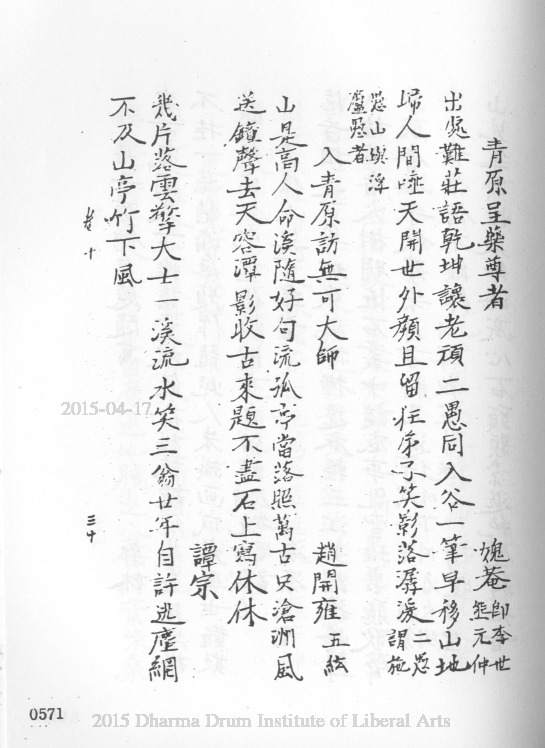 青原呈藥尊者
媿菴 即李世熊元仲
出處難莊語乾坤讓老頑二愚同入谷一筆早移山地
歸人間啞天開世外顏且留狂弟子笑影落潺湲 二愚謂施
愚山與浮廬愚者
入青原訪無可大師
趙開雍 五紘
山是高人命溪隨好句流孤亭當落照萬古只滄洲風
送鐘聲去天容潭影收古來題不盡石上寫休休
譚宗
幾片落雲擎大士一溪流水笑三翁廿年自許逃塵網
不及山亭竹下風
卷十
三十
0571
2015-04-17
2015 Dharma Drum Institute of Liberal Arts